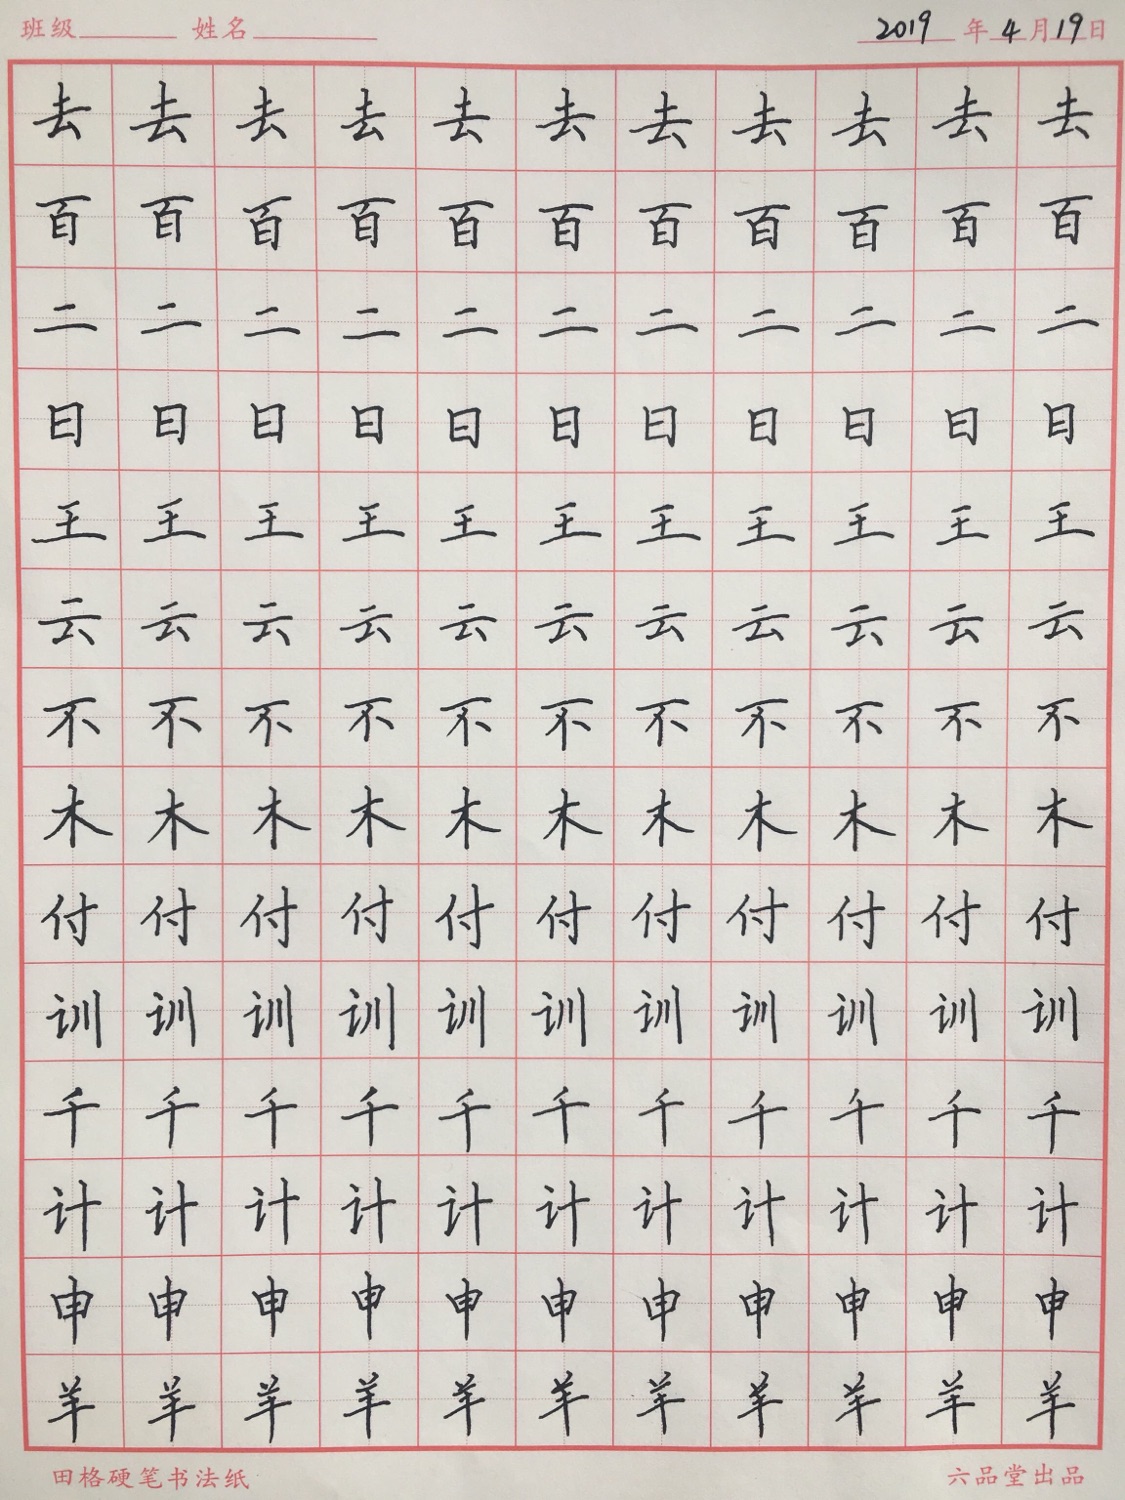 班级 姓名 2019年4月19日
去去去去去去去去去去去
百百百百百百百百百百百
二二二二二二二二二二二
日日日日日日日日日日日
王王王王王王王王王王王
云云云云云云云云云云云
不不不不不不不不不不不
木木木木木木木木木木木
付付付付付付付付付付付
训训训训训训训训训训训
千千千千千千千千千千千
计计计计计计计计计计计
申申申申申申申申申申申
羊羊羊羊羊羊羊羊羊羊羊
田格硬笔书法纸 六品堂出品